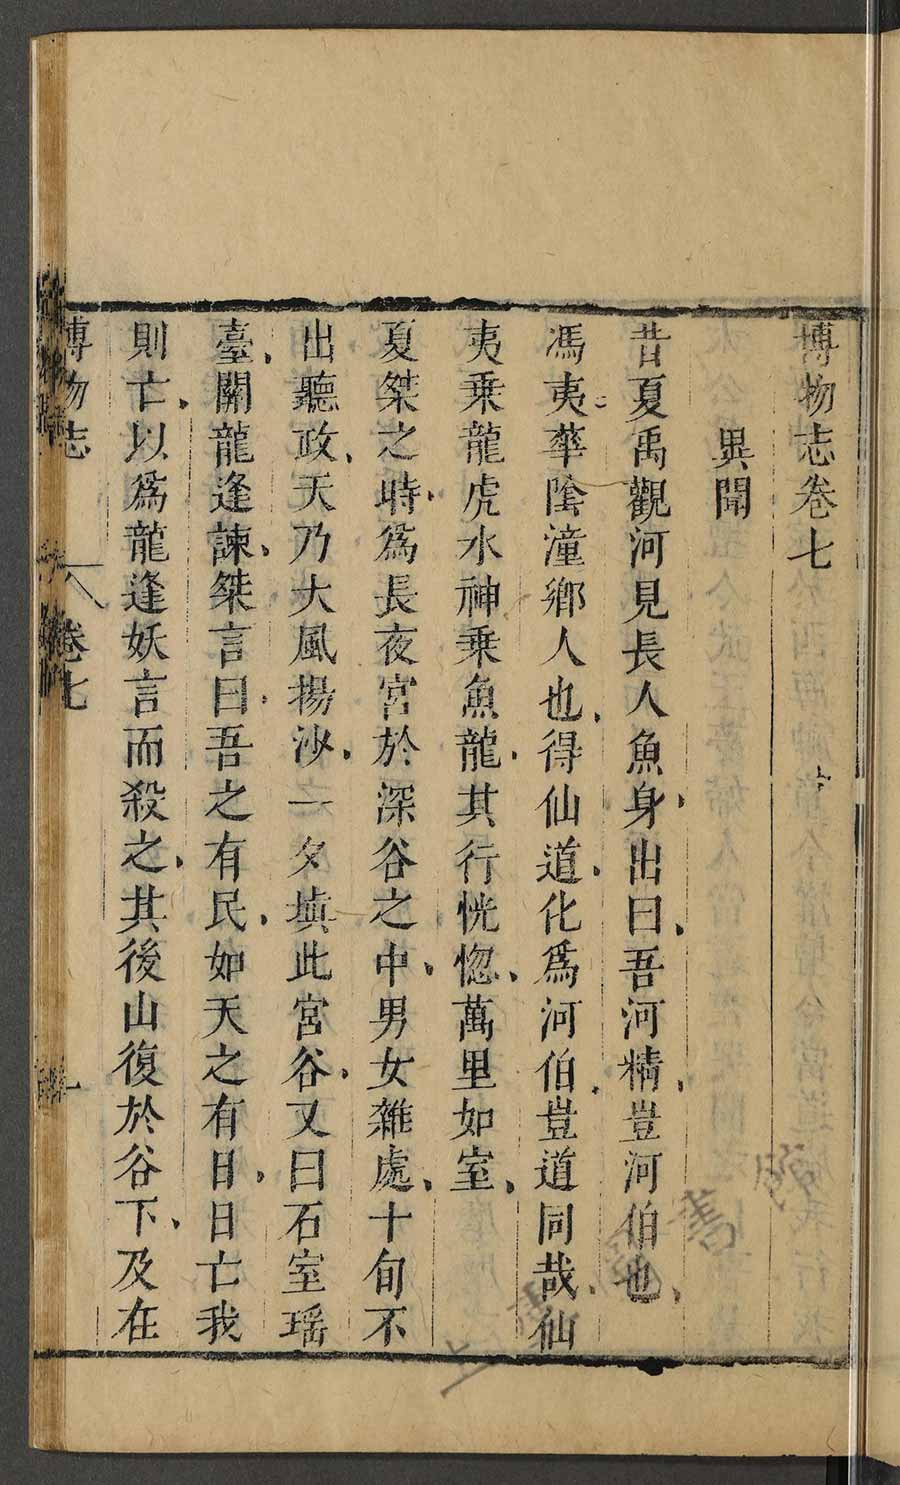 博物志卷七
異聞
昔夏禹觀河見長人魚身出曰吾河精豈河伯也
馮夷華陰潼鄉人也得仙道化爲河伯豈道同哉仙
夷乗龍虎水神乗魚龍其行恍惚萬里如室
夏桀之時爲長夜宮於深谷之中男女雜處十旬不
出聽政天乃大風揚沙一夕填此宮谷又曰石室瑶
臺關龍逢諫桀言曰吾之有民如天之有日日亡我
則亡以爲龍逢妖言而殺之其後山復於谷下及在
博物志 卷七 一